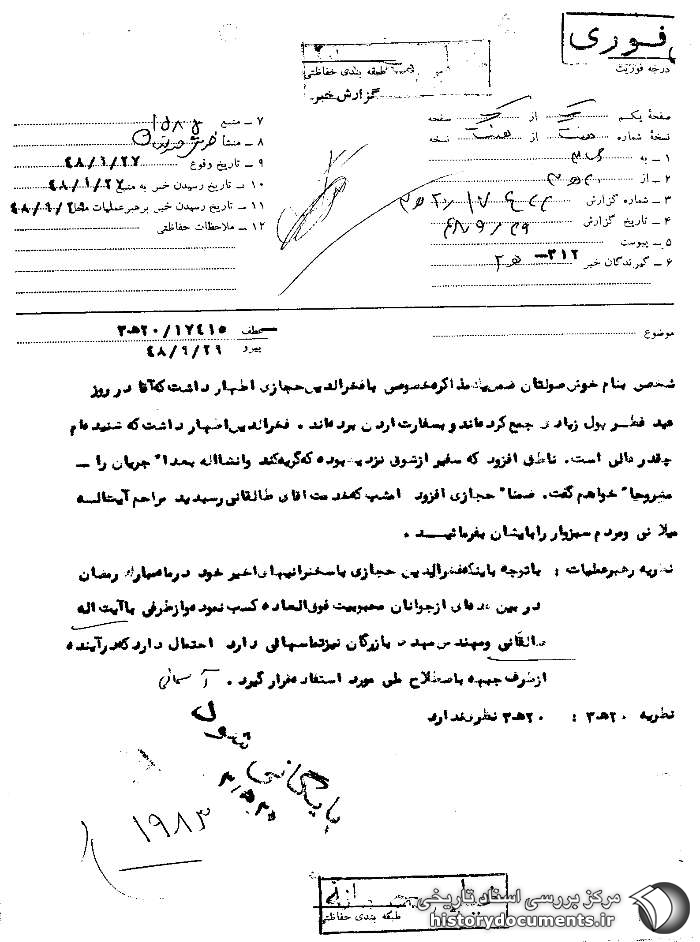 فوری
درجه فوریت
طبقه بندی حفاظتی
گزارش خبر
صفحهٔ یکم از صفحه
نسخهٔ شماره هشت از هشت نسخه
۱ ـ به
۲ ـ از ۲۰ هـ ۳
۳ ـ شماره گزارش
۴ ـ تاریخ گزارش
۵ ـ پیوست
۶ ـ گیرندگان خبر ۳۱۲ ـ
۷ ـ منبع
۸ ـ منشأ
۹ ـ تاریخ وقوع ۴۸/۹/۲۷
۱۰ ـ تاریخ رسیدن خبر به منبع ۴۸/۹/۲۷
۱۱ ـ تاریخ رسیدن خبر برهبر عملیات محل
۱۲ ـ ملاحظات حفاظتی
موضوع
عطف ۳هـ۲۰/۱۷۴۱۵
پیرو ۴۸/۹/۲۹
شخصی بنام خوش صولتان ضمن یك مذاكره خصوصی با فخرالدین حجازی اظهار داشت که آقا در روز
عید فطر پول زیادی جمع کرده‌اند و بسفارت اردن برده‌اند . فخرالدین اظهار داشت که شنیده‌ام
چقدر عالی است . ناطق افزود که سفیر از شوق نزدیك بوده که گریه کند وانشااله بعدا" جریان را ـ
مشروحا" خواهم گفت . ضمنا" حجازی افزود امشب که خدمت آقای طالقانی رسیدید مراحم آیت‌اله
میلانی ومردم سبزوار را بایشان بفرمائید .
نظریه رهبر عملیات : باتوجه باینکه فخرالدین حجازی با سخنرانیهای اخیر خود در ماه مبارك رمضان
در بین عده‌ای از جوانان محبوبیت فوق‌العاده کسب نموده و از طرفی با آیت اله
طالقانی ومهندس مهدی بازرگان نیز تماسهائی دارد احتمال دارد که در آینده
از طرف جبهه باصطلاح ملی مورد استفاده قرار گیرد . آسمانی
نظریه ۲۰هـ۳ : ۲۰هـ۳ نظری ندارد
بایگانی شود
۱۹۸۳
طبقه بندی حفاظتی
مرکز بررسی اسناد تاریخی
historydocuments.ir